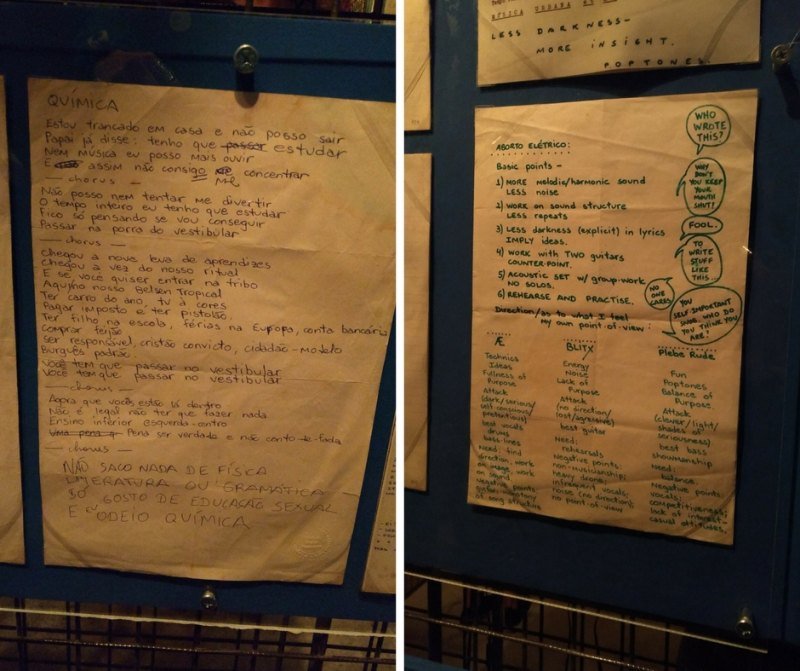 QUÍMICA
Estou trancado em casa e não posso sair
Papai já disse: tenho que passar estudar
Nem música eu posso mais ouvir
E assim não consigo me concentrar
— chorus —
Não posso nem tentar me divertir
O tempo inteiro eu tenho que estudar
Fico só pensando se vou conseguir
Passar na porra do vestibular
— chorus —
Chegou a nova leva de aprendizes
Chegou a vez do nosso ritual
E se você quiser entrar na tribo
Aqui no nosso Belsen Tropical
Ter carro do ano, tv a cores
Pagar imposto e ter pistolão.
Ter filho na escola, férias na Europa, conta bancária
Comprar feijão
Ser responsável, cristão convicto, cidadão-modelo
Burguês padrão.
Você tem que passar no vestibular
Você tem que passar no vestibular
— chorus —
Agora que vocês estão lá dentro
Não é legal não ter que fazer nada
Ensino inferior esquerda-entro
Uma pena q Pena ser verdade e não conto-de-fada
— chorus —
NÃO SACO NADA DE FÍSICA
LITERATURA OU GRAMÁTICA
SÓ GOSTO DE EDUCAÇÃO SEXUAL
E EU ODEIO QUÍMICA
MÚSICA URBANA
LESS DARKNESS-
MORE INSIGHT.
POPTONES.
ABORTO ELÉTRICO:
Basic points -
1) MORE melodic/harmonic sound
LESS noise
2) WORK on sound structure
LESS repeats
3) LESS darkness (explicit) in lyrics
IMPLY ideas.
4) WORK with TWO guitars
COUNTER-POINT.
5) ACOUSTIC SET w/ group-work
NO SOLOS.
6) REHEARSE AND PRACTISE.
Direction/as to what I feel
my own point-of-view:
WHO
WROTE
THIS?
WHY
DON'T
YOU KEEP
YOUR
MOUTH
SHUT!
FOOL.
TO
WRITE
STUFF
LIKE
THIS...
NO
ONE
CARES
YOU
SELF-IMPORTANT
SNOB. WHO DO
YOU THINK YOU
ARE?
Æ
Technics
Ideas
Fullness of
Purpose
Attack
(dark/serious/
self conscious/
pretentious)
best vocals
drums
bass lines
Need: find
direction; work
on image, work
on sound
negative points:
guitar; monotony
of song structure
BLITX
Energy
Noise
Lack of
Purpose
Attack
(no direction/
lost/agressive)
best guitar
Need:
rehearsals
Negative points:
non-musicianship;
heavy drone;
infrequent vocals;
noise (no direction);
no point-of-view
Plebe Rude
Fun
Poptones
Balance of
Purpose
Attack
(clever/light/
shades of
seriousness)
best bass
showmanship
Need:
balance.
Negative points:
vocals;
competitiveness;
lack of interest-
casual attitudes.